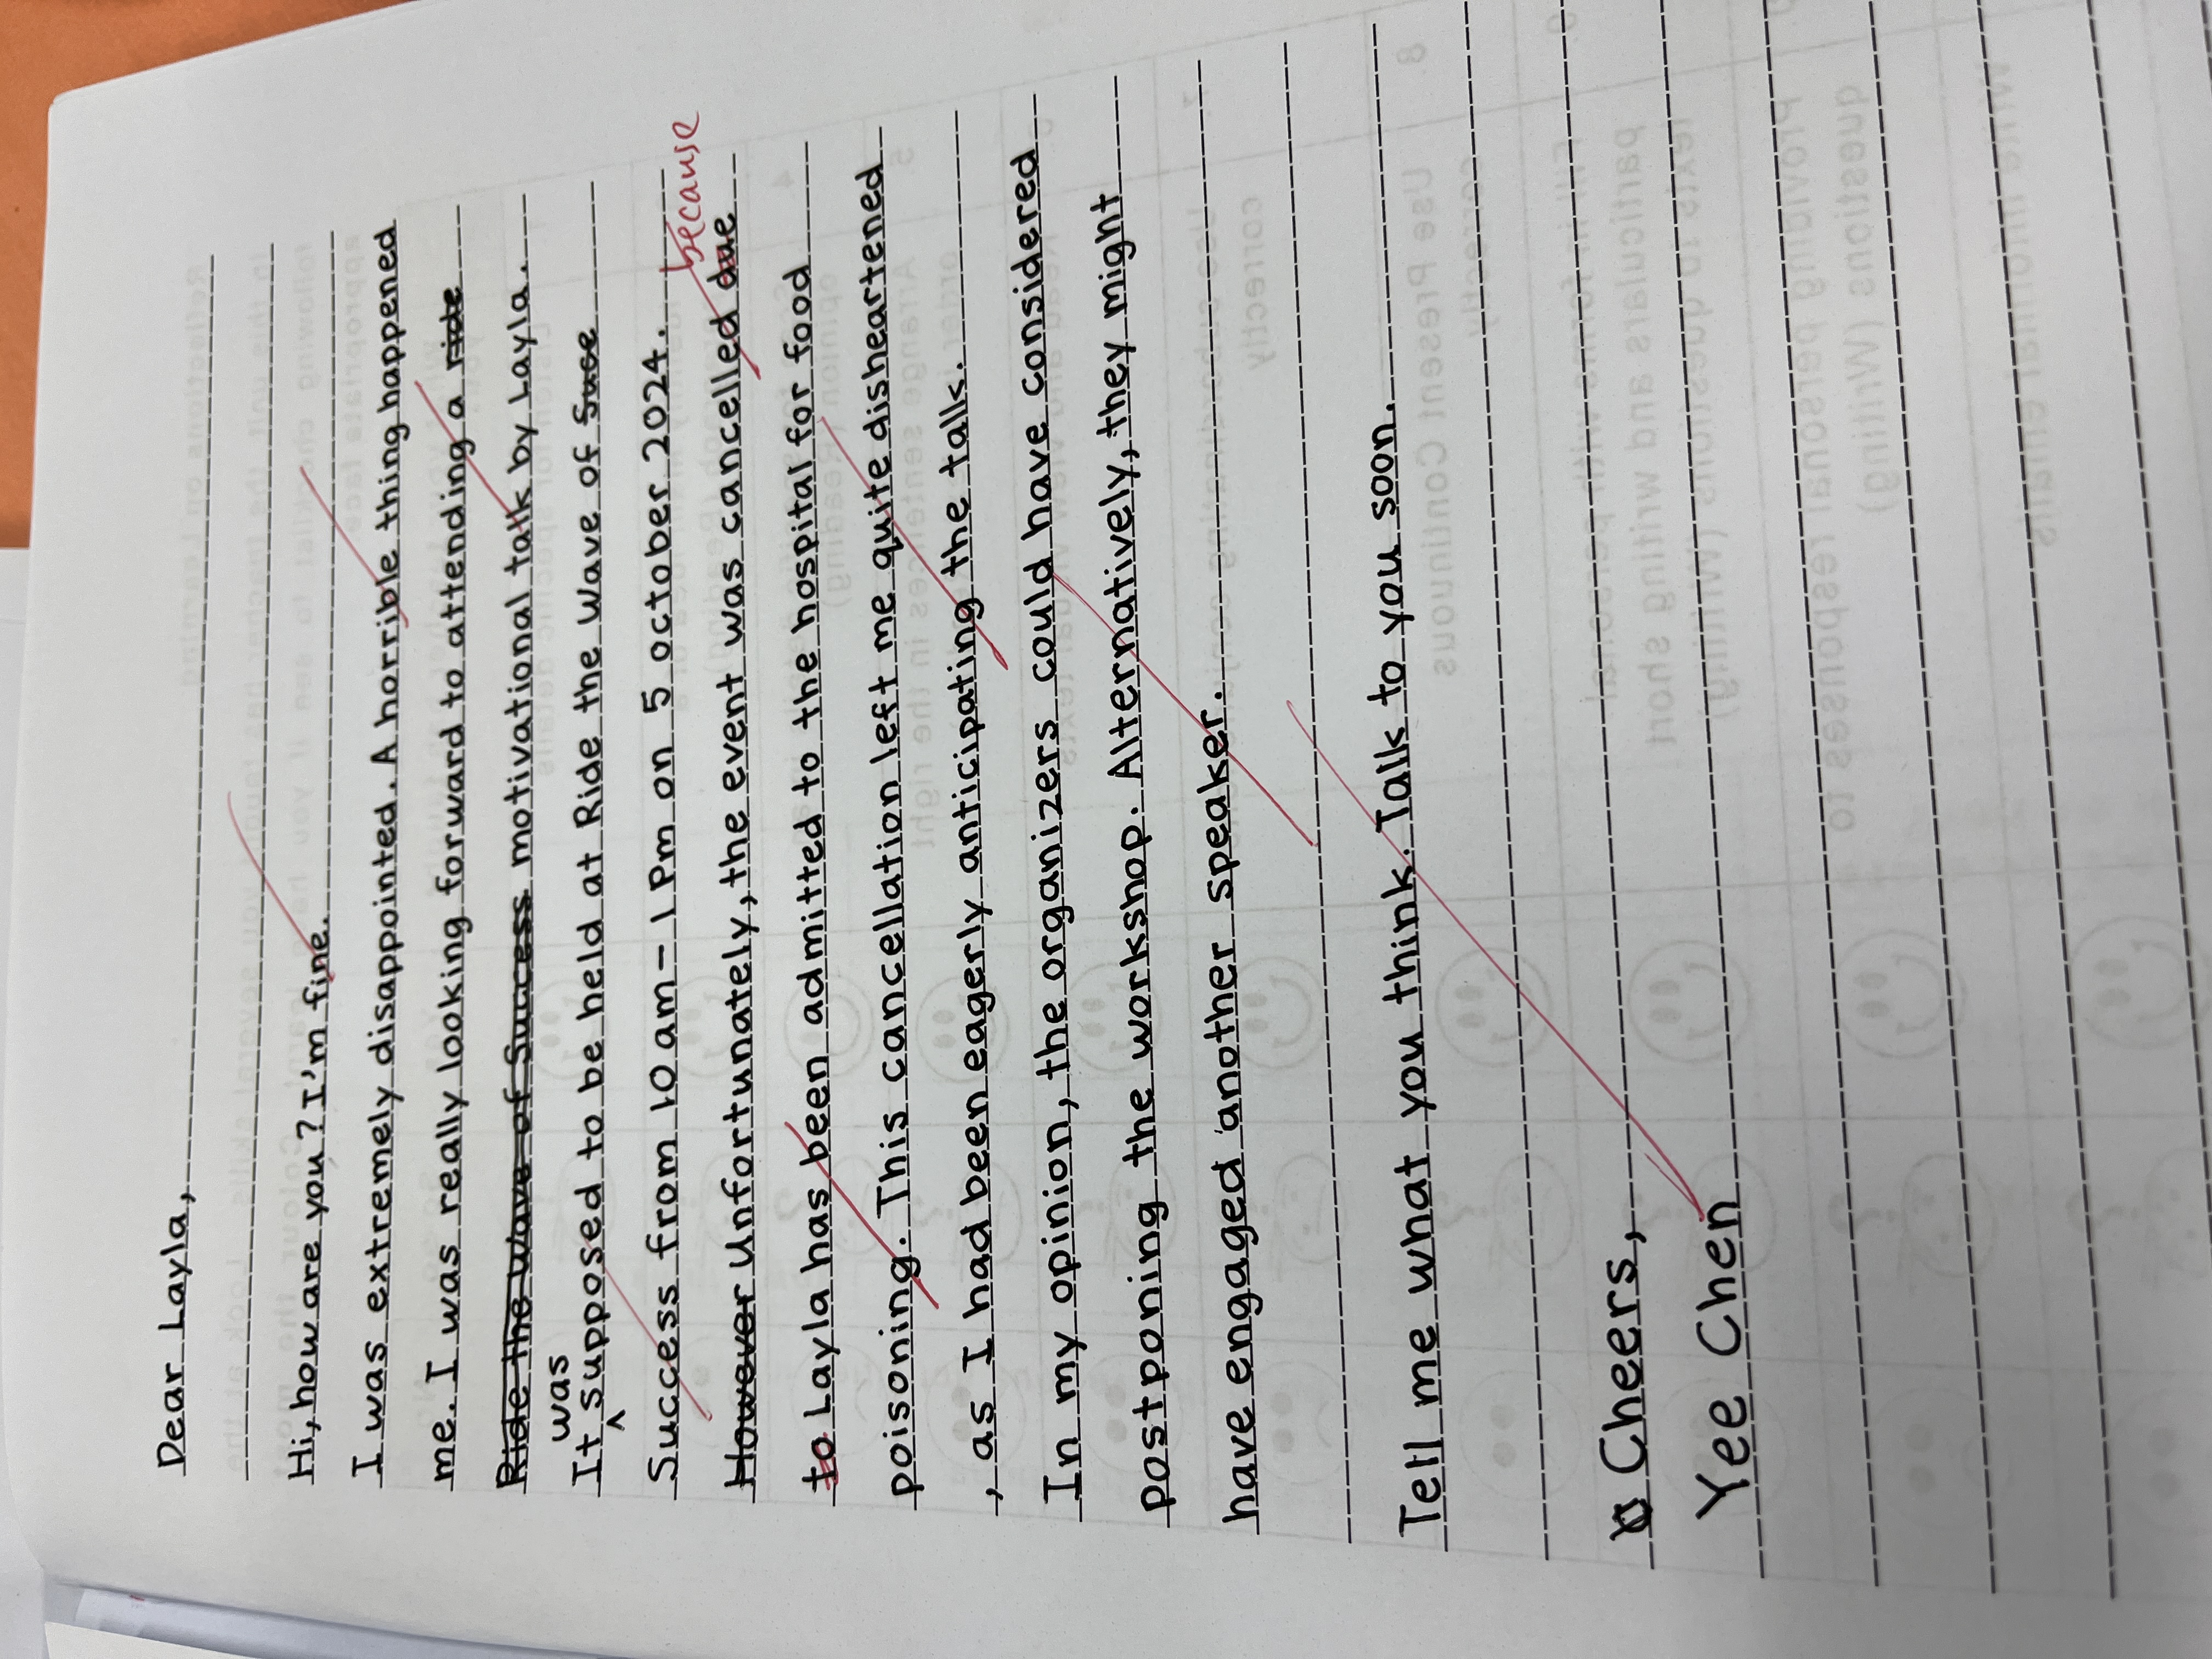 Dear Layla,
Hi, how are you? I'm fine.
I was extremely disappointed. A horrible thing happened
me. I was really looking forward to attending a ride
Ride the wave of Success motivational talk by Layla.
was
It supposed to be held at Ride the Wave of Suce
Success from 10 am - 1 Pm on 5 october 2024.
because
However Unfortunately, the event was cancelled due
to Layla has been admitted to the hospital for food
poisoning. This cancellation left me quite disheartened
, as I had been eagerly anticipating the talk.
In my opinion, the organizers could have considered
postponing the workshop. Alternatively, they might
have engaged another speaker.
Tell me what you think. Talk to you soon.
Cheers,
Yee Chen